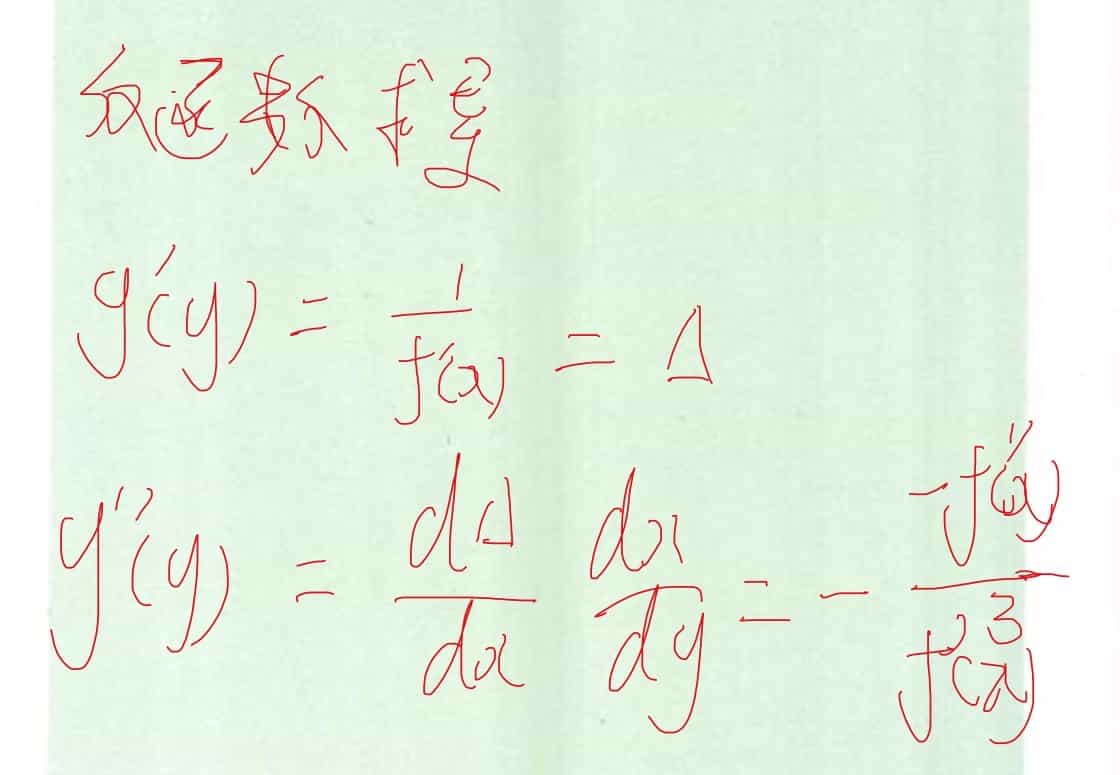 反函数求导
g'(y) = 1/f'(x) = Δ
g''(y) = dΔ/dx dx/dy = - -f''(x)/f'^3(x)